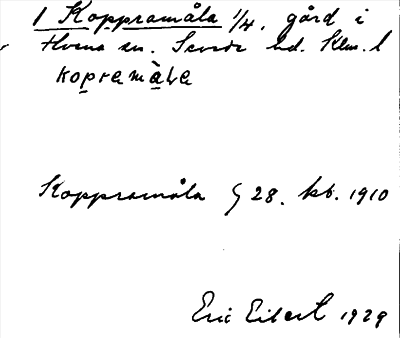 1 Koppramåla 1/4, gård i
Hvena sn. Sevede hd. Klm. l
kopramåla
Koppramåla 28. kb. 1910
Eric Eilert 1929